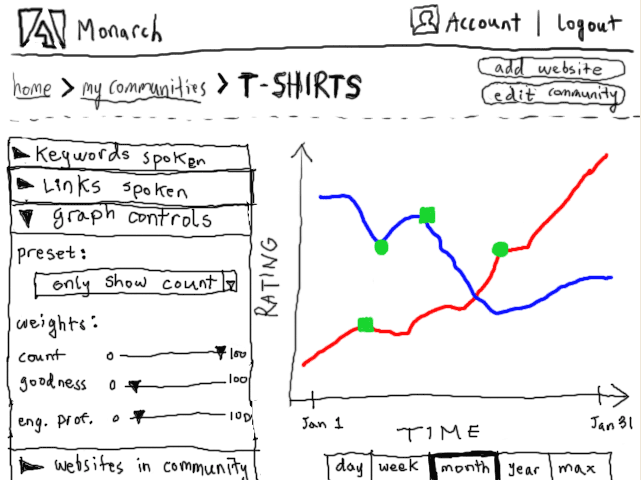 Monarch
Account | Logout
home > my communities > T-SHIRTS
add website
edit community
Keywords spoken
Links spoken
graph controls
preset:
only show count
weights:
count 0 100
goodness 0 100
eng. prof. 0 100
websites in community
RATING
Jan 1
Jan 31
TIME
day week month year max